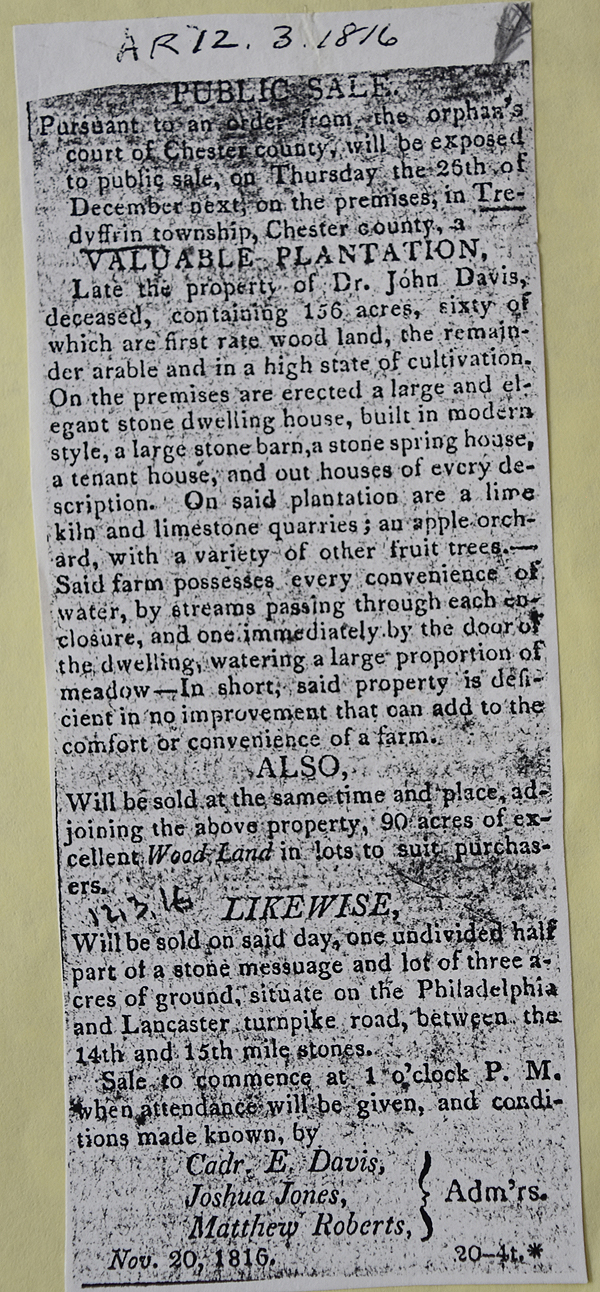 AR 12. 3. 1816
PUBLIC SALE.
Pursuant to an order from the orphan's
court of Chester county, will be exposed
to public sale, on Thursday the 26th of
December next, on the premises, in Tre-
dyffrin township, Chester county, a
VALUABLE PLANTATION,
Late the property of Dr. John Davis,
deceased, containing 156 acres, sixty of
which are first rate wood land, the remain-
der arable and in a high state of cultivation.
On the premises are erected a large and el-
egant stone dwelling house, built in modern
style, a large stone barn, a stone spring house,
a tenant house, and out houses of every de-
scription. On said plantation are a lime
kiln and limestone quarries; an apple orch-
ard, with a variety of other fruit trees.—
Said farm possesses every convenience of
water, by streams passing through each en-
closure, and one immediately by the door of
the dwelling, watering a large proportion of
meadow—In short, said property is defi-
cient in no improvement that can add to the
comfort or convenience of a farm.
ALSO,
Will be sold at the same time and place, ad-
joining the above property, 90 acres of ex-
cellent Wood Land in lots to suit purchas-
ers.
12.3.16
LIKEWISE,
Will be sold on said day, one undivided half
part of a stone messuage and lot of three a-
cres of ground, situate on the Philadelphia
and Lancaster turnpike road, between the
14th and 15th mile stones.
Sale to commence at 1 o'clock P. M.
when attendance will be given, and condi-
tions made known, by
Cadr. E. Davis,
Joshua Jones, } Adm'rs.
Matthew Roberts,
Nov. 20, 1816. 20-4t.*